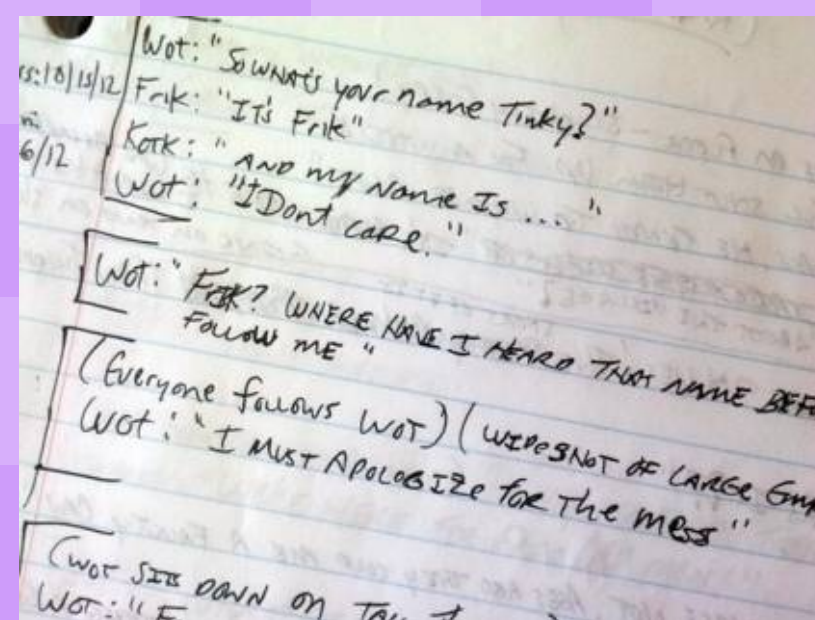 Wot: "So what's your name Tinky?"
10/15/12
Frik: "It's Frik"
6/12
Kork: "AND my Name Is ... "
Wot: "I Dont care."
Wot: "Frik? WHERE HAVE I HEARD THAT NAME
Follow ME "
(Everyone follows WOT) (WIDESHOT OF LARGE
Wot: "I MUST APOLOGIZE for The mess"
(WOT SITS DOWN on
WOT: "